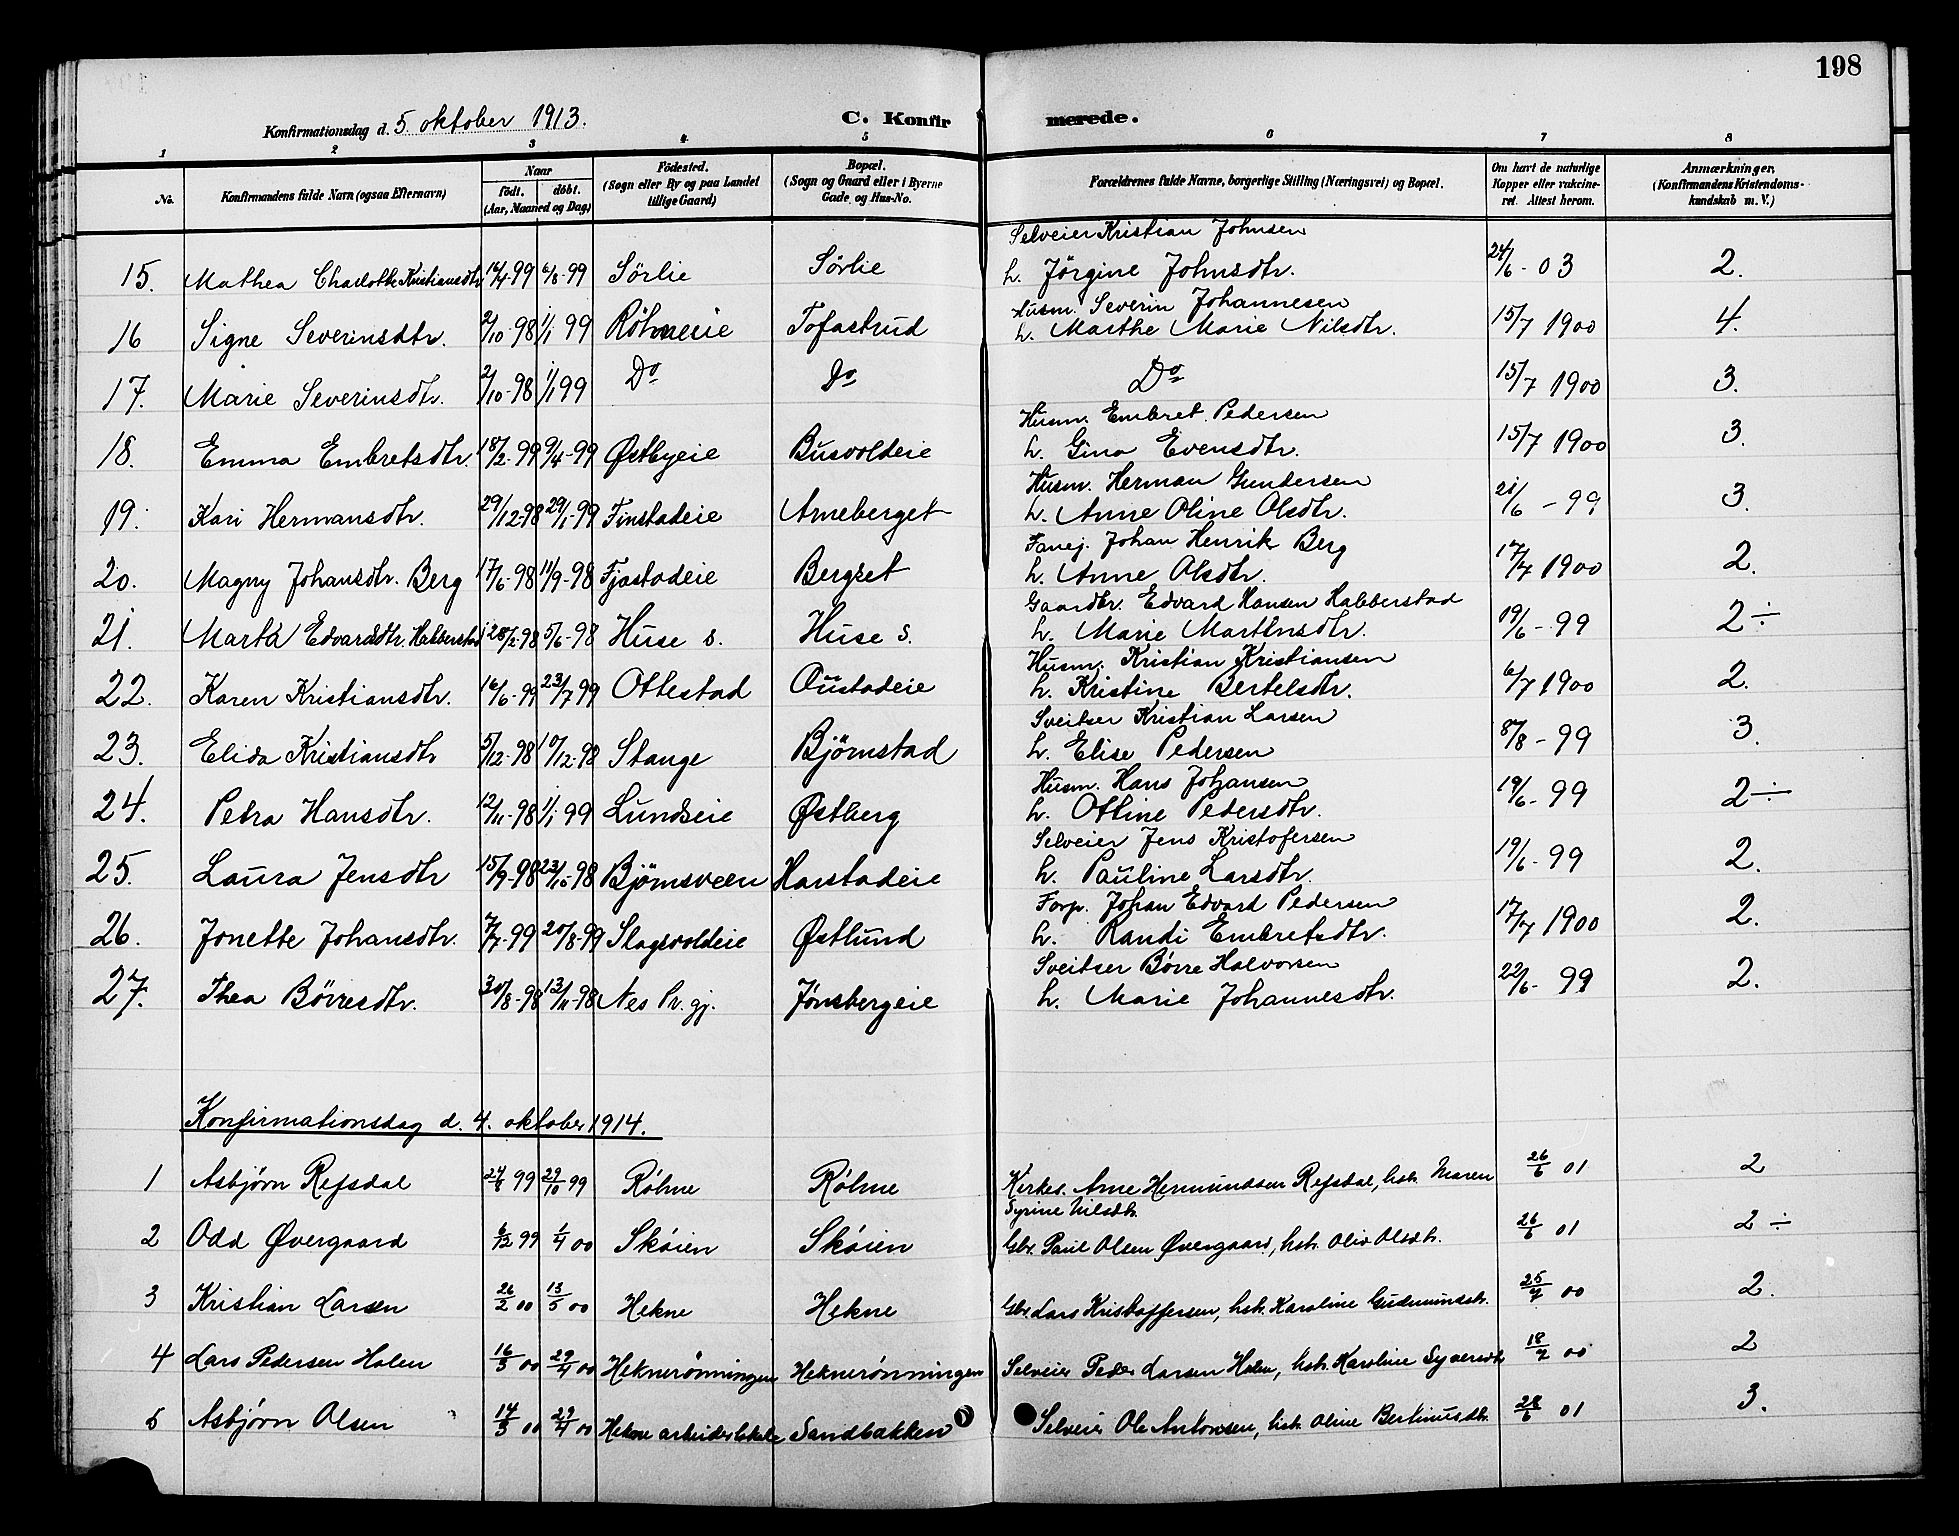 198
Konfirmationsdag d. 5. oktober 1913. C. Konfirmerede.
1 2 3 4 5 6 7 8
No. Konfirmandens fulde Navn (ogsaa Efternavn) Naar født. døbt. (Aar, Maaned og Dag) Fødested. (Sogn eller By og paa Landet tillige Gaard) Bopæl. (Sogn og Gaard eller i Byerne Gade og Hus-No. Forældrenes fulde Navne, borgerlige Stilling (Næringsvei) og Bopæl. Om havt de naturlige Kopper eller vaccineret. Attest herom. Anmærkninger. (Konfirmandens Kristendomskundskab m. V.)
Selveier Kristian Johnsen
15. Mathea Charlotte Kristiansdtr. 14/4-99 6/8-99 Sörlie Sörlie h. Jörgine Johnsdtr. 24/6-03 2.
Husm. Severin Johannesen
16 Signe Severinsdtr. 2/10-98 1/1 99 Röhneeie Tofastrud h. Marthe Marie Nilsdtr. 15/7 1900 4.
17. Marie Severinsdtr. 2/10-98 1/1 99 Do Do Do 15/7 1900 3.
Husm. Embret Pedersen
18. Emma Embretsdtr. 18/2-99 9/4-99 Østbyeie Busvoldeie h. Gina Evensdtr. 15/7 1900 3.
Husm. Herman Gundersen
19. Kari Hermansdtr. 29/12-98 29/1-99 Finstadeie Arneberget h. Anne Oline Olsdtr. 21/6-99 3.
Fanej. Johan Henrik Berg
20. Magny Johansdtr. Berg 17/6-98 11/9-98 Fjæstadeie Bergset h. Anne Olsdtr. 17/7 1900 2.
Gaardbr. Edvard Hansen Habberstad
21. Marta Edvardsdtr. Habberstad 28/2-98 5/6-98 Huse s. Huse s. h. Marie Martinsdtr. 19/6-99 2 ÷
Husm. Kristian Kristiansen
22. Karen Kristiansdtr. 16/6-99 23/7 99 Ottestad Oustadeie h. Kristine Bertelsdtr. 6/7 1900 2.
Sveitser Kristian Larsen
23. Elida Kristiansdtr 5/12-98 10/12-98 Stange Björnstad h. Elise Pedersen 8/8-99 3.
Husm. Hans Johansen
24. Petra Hansdtr. 12/11-98 1/1 99 Lundseie Østberg h. Ottine Pedersdtr. 19/6-99 2 ÷
Selveier Jens Kristofersen
25. Laura Jensdtr 15/9-98 23/10-98 Björnsveen Harstadeie h. Pauline Larsdtr. 19/6-99 2.
Forp. Johan Edvard Pedersen
26. Jonette Johansdtr. 7/7-99 20/8-99 Slagsvoldeie Østlund h. Randi Embretsdtr. 17/7 1900 2.
Sveitser Børre Halvorsen
27. Thea Börresdtr. 30/8-98 13/11-98 Nes Pr. gj. Jönsbergeie h. Marie Johannesdtr. 22/6-99 2.
Konfirmationsdag d. 4. oktober 1914.
1 Asbjørn Refsdal 24/8 99 29/10 99 Röhne Röhne Kirkes. Arne Hermundsen Refsdal, hstr. Maren 26/6 01 2
Syrine Nilsdtr.
2 Odd Øvergaard 6/12 99 1/4 00 Skóien Skóien Gbr. Paul Olsen Øvergaard, hstr. Oliv Olsdtr. 26/6 01 2 ÷
3 Kristian Larsen 26/2 00 13/5 00 Hekne Hekne Gbr. Lars Kristoffersen, hstr. Karoline Gudmundsdtr. 25/7 00 2.
4 Lars Pedersen Holen 16/3 00 29/4 00 Heknerönningen Heknerönningen Selveier Peder Larsen Holen, hstr. Karoline Syversdtr 18/7 00 2
5 Asbjørn Olsen 14/3 00 29/4 00 Hekne arbeiderlokale Sandbakken Selveier Ole Antonsen, hstr. Oline Bertinusdtr. 28/6 01 3.